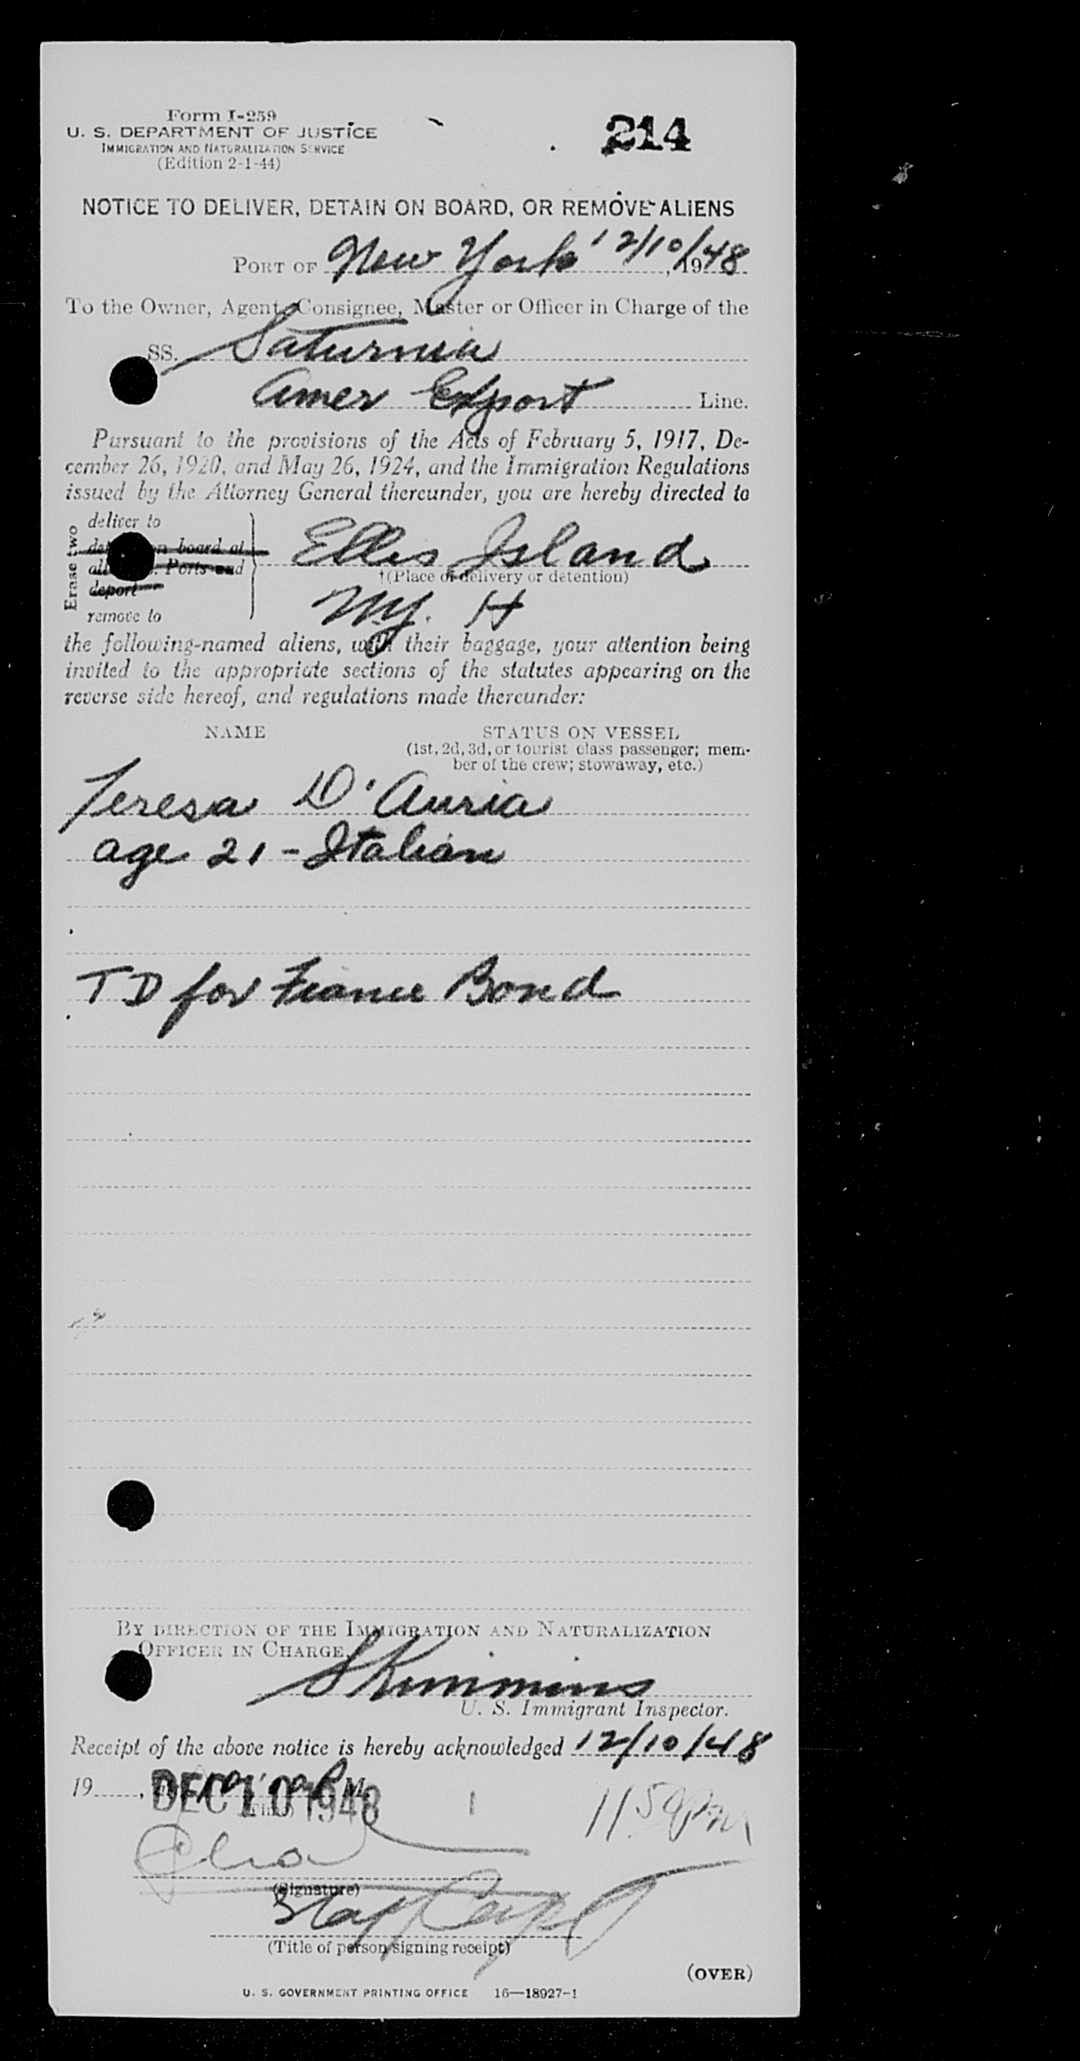 Form I-259
U. S. DEPARTMENT OF JUSTICE
IMMIGRATION AND NATURALIZATION SERVICE
(Edition 2-1-44)
214
NOTICE TO DELIVER, DETAIN ON BOARD, OR REMOVE ALIENS
PORT OF New York 12/10/48, 19
To the Owner, Agent, Consignee, Master or Officer in Charge of the
SS. Saturnia
Amer Export Line.
Pursuant to the provisions of the Acts of February 5, 1917, De-
cember 26, 1920, and May 26, 1924, and the Immigration Regulations
issued by the Attorney General thereunder, you are hereby directed to
Erase two
deliver to
on board at
Ports and
deport
remove to
Ellis Island
†(Place of delivery or detention)
N.Y. H
the following-named aliens, with their baggage, your attention being
invited to the appropriate sections of the statutes appearing on the
reverse side hereof, and regulations made thereunder:
NAME STATUS ON VESSEL
(1st, 2d, 3d, or tourist class passenger; mem-
ber of the crew; stowaway, etc.)
Teresa D'Auria
age 21 - Italian
TD for Fiance Bond
BY DIRECTION OF THE IMMIGRATION AND NATURALIZATION
OFFICER IN CHARGE,
SKimmins
U. S. Immigrant Inspector.
Receipt of the above notice is hereby acknowledged 12/10/48
19
DEC 10 1948
(Signature)
Staff Capt
(Title of person signing receipt)
(OVER)
U. S. GOVERNMENT PRINTING OFFICE 16—18927-1